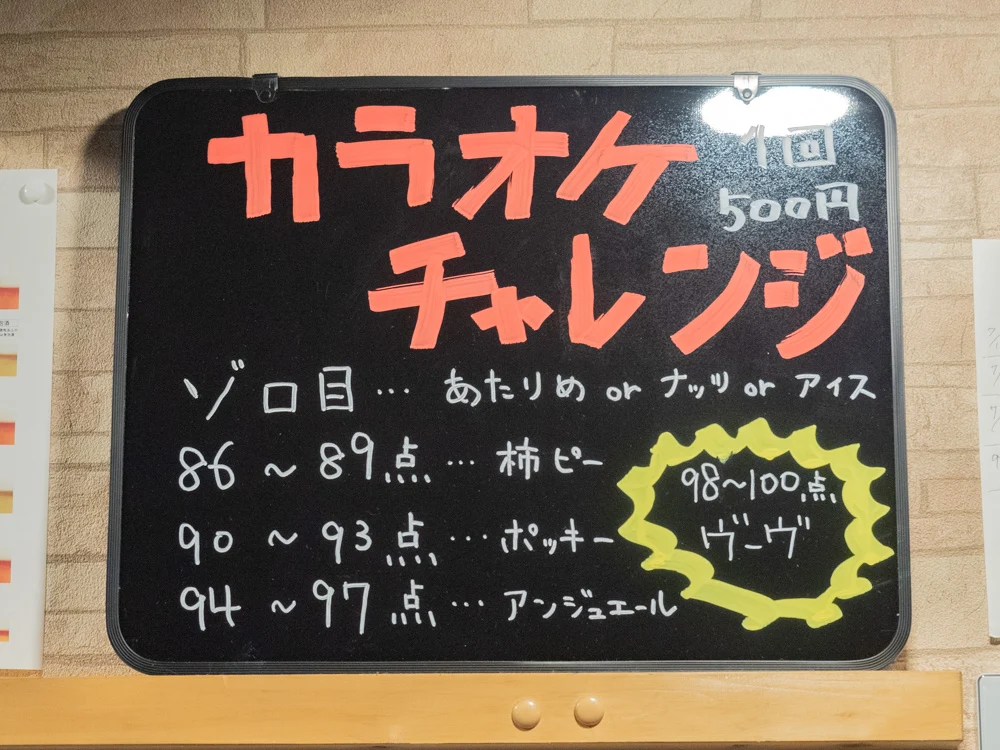 カラオケ
1回
500円
チャレンジ
ゾロ目… あたりめ or ナッツ or アイス
86 ~ 89点… 柿ピー
90 ~ 93点… ポッキー
94 ~ 97点… アンジュエール
98~100点
ヴーヴ